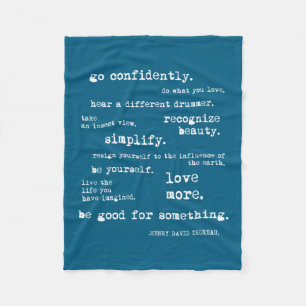 go confidently.
do what you love.
hear a different drummer.
take
an insect view.
recognize
beauty.
simplify.
resign yourself to the influence of
the earth.
be yourself.
live the
life you
have imagined.
love
more.
be good for something.
.HENRY DAVID THOREAU.